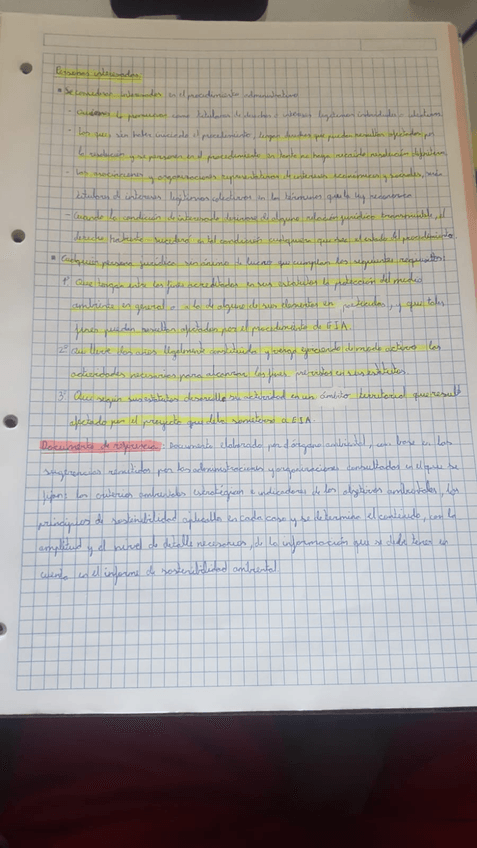 Personas interesadas:
* Se consideran interesados en el procedimiento administrativo
- Quienes lo promuevan como titulares de derechos o intereses legítimos individuales o colectivos
- Los que, sin haber iniciado el procedimiento, tengan derechos que puedan resultar afectados por
la resolución y se personen en el procedimiento en tanto no haya recaído resolución definitiva.
- Las asociaciones y organizaciones representativas de intereses económicos y sociales, serán
titulares de intereses legítimos colectivos en los términos que la ley reconozca
- Cuando la condición de interesado derivase de alguna relación jurídica transmisible, el
derecho habiente sucederá en tal condición cualquiera que sea el estado del procedimiento.
* Cualquier persona jurídica sin ánimo de lucro que cumplan los siguientes requisitos:
1º Que tengan entre los fines acreditados en sus estatutos la protección del medio
ambiente en general o la de alguno de sus elementos en particular, y que tales
fines puedan resultar afectados por el procedimiento de EIA.
2º Que lleve dos años legalmente constituida y venga ejerciendo de modo activo las
actividades necesarias para alcanzar los fines previstos en sus estatutos.
3º Que según sus estatutos desarrolle su actividad en un ámbito territorial que result
afectado por el proyecto que debe someterse a EIA.
Documento de referencia: Documento elaborado por el órgano ambiental, con base en las
sugerencias remitidas por las administraciones y organizaciones consultadas en el que se
fijan: los criterios ambientales estratégicos e indicadores de los objetivos ambientales, los
principios de sostenibilidad aplicables en cada caso y se determina el contenido, con la
amplitud y el nivel de detalle necesarios, de la información que se debe tener en
cuenta en el informe de sostenibilidad ambiental